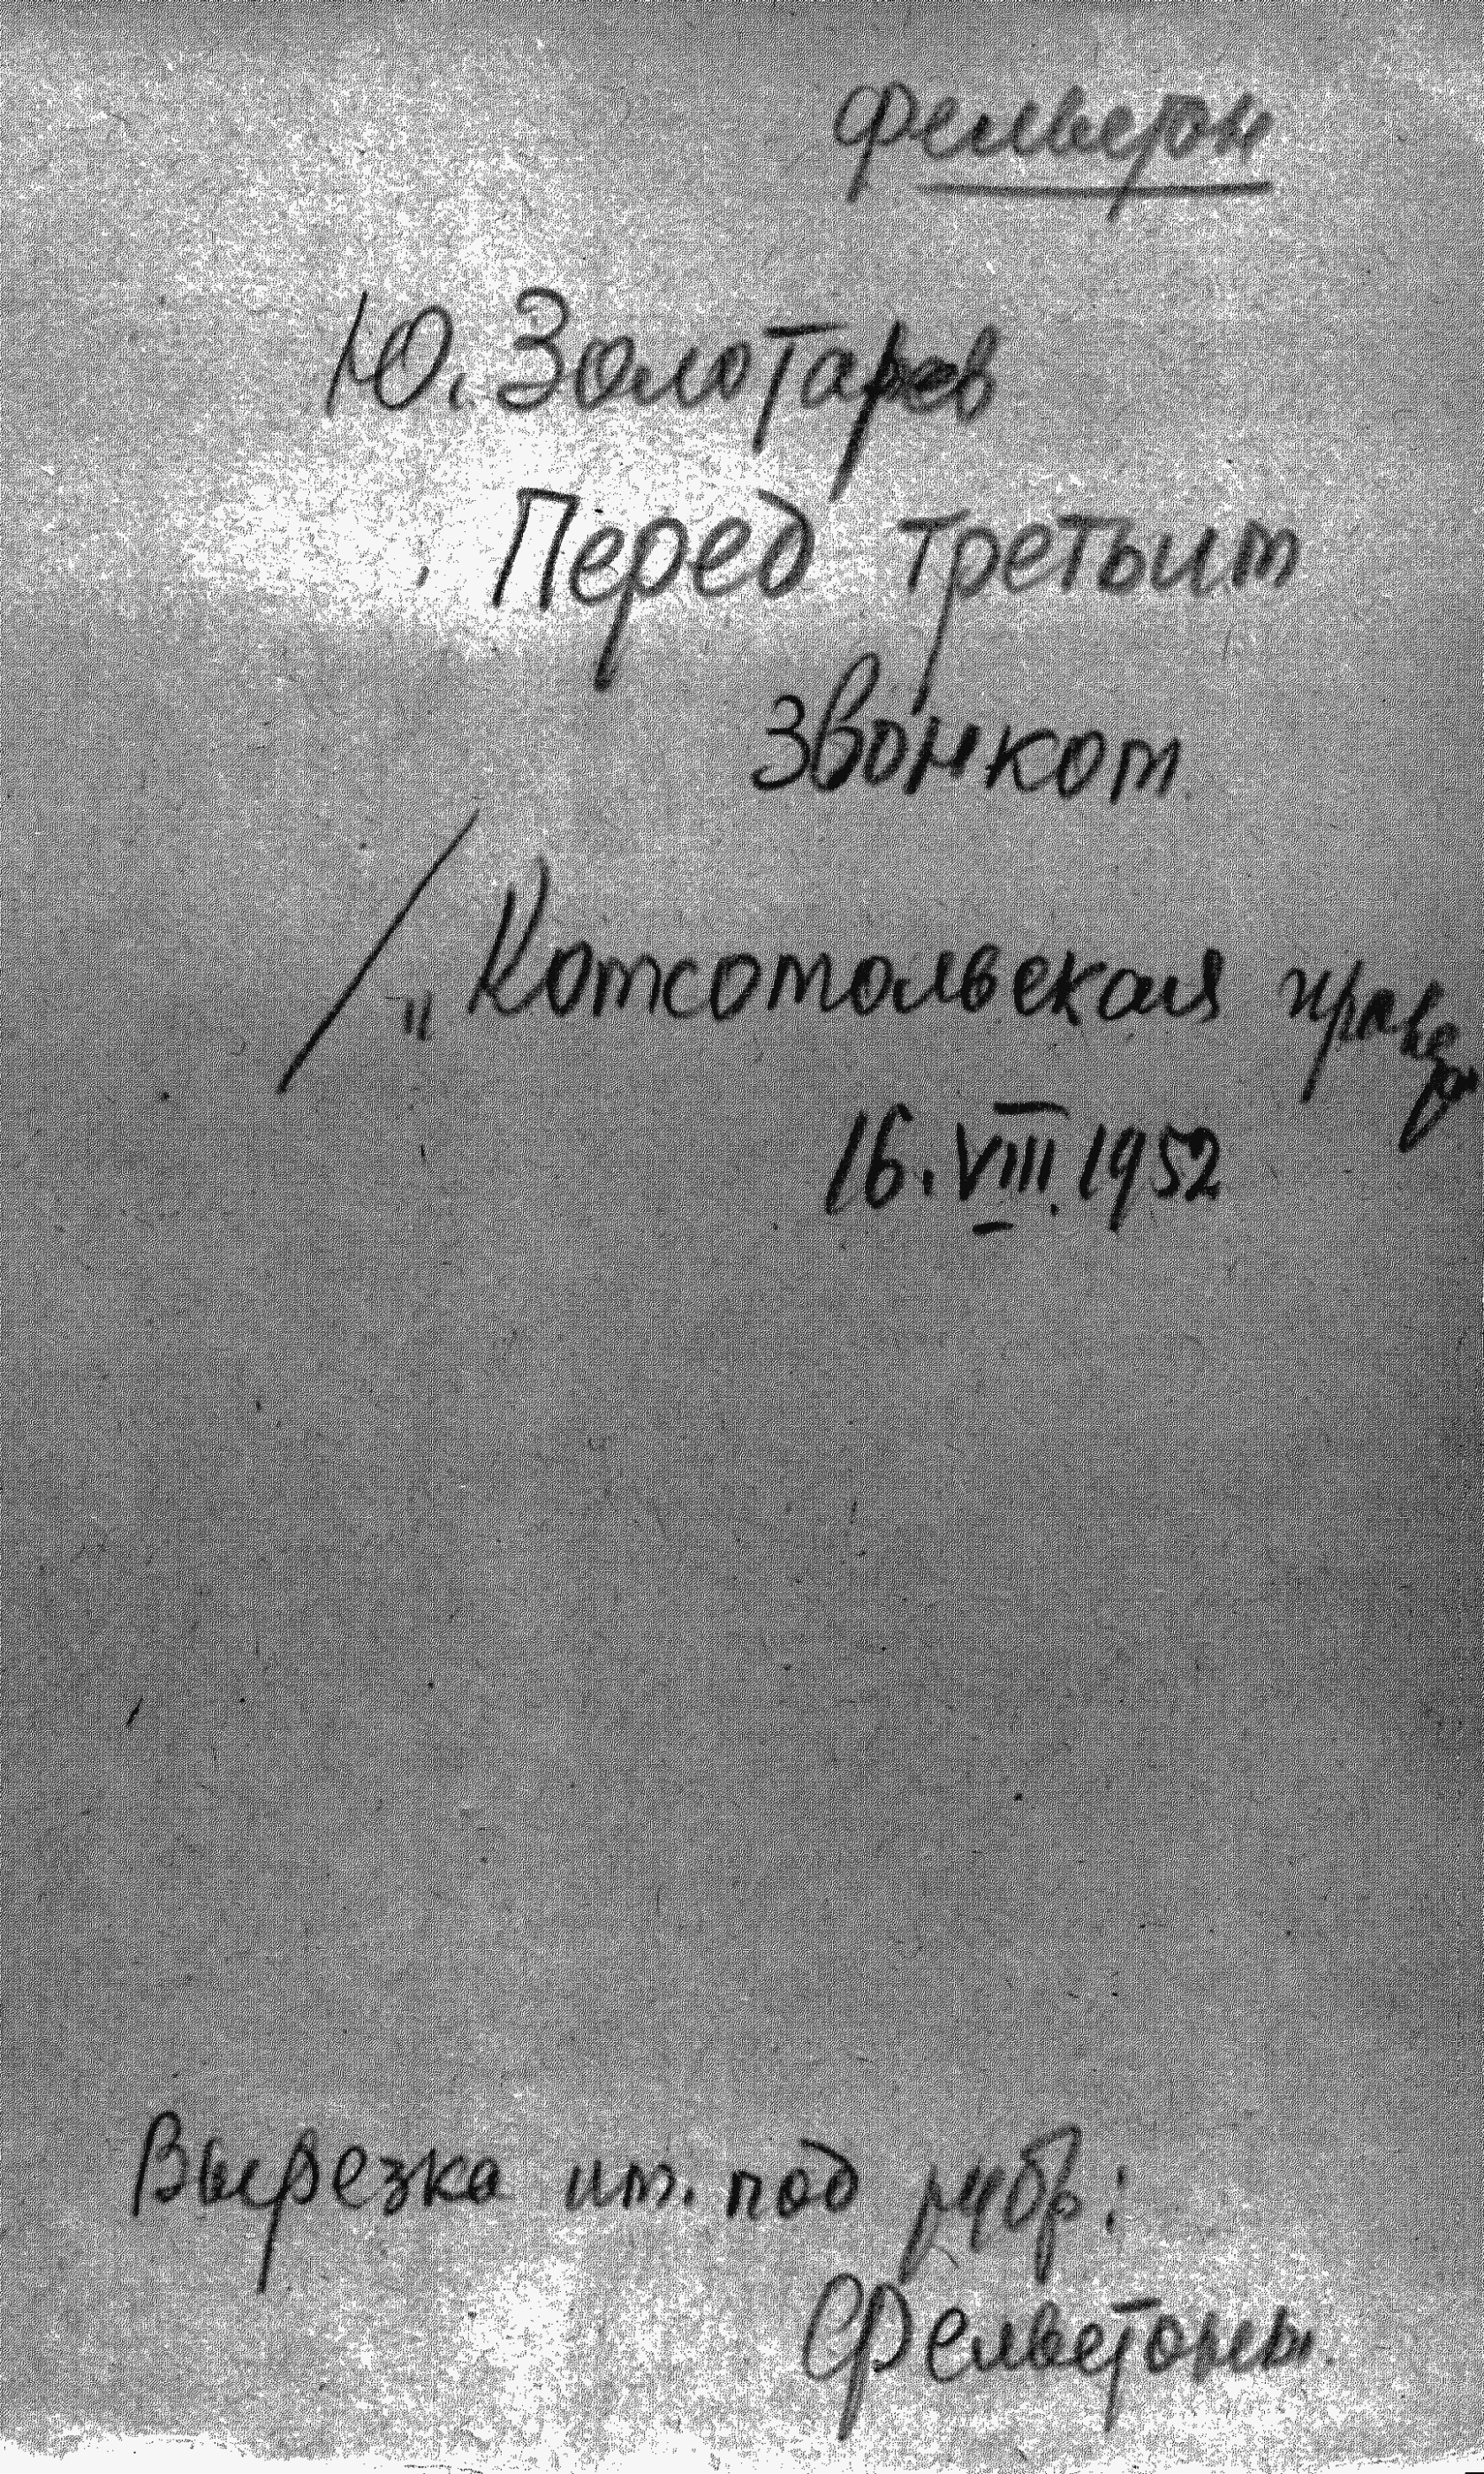 Фельетон
Ю. Золотарев
Перед третьим
звонком
/ „Комсомольская правда
16.VIII.1952
Вырезка им. под рубр.:
Фельетоны.